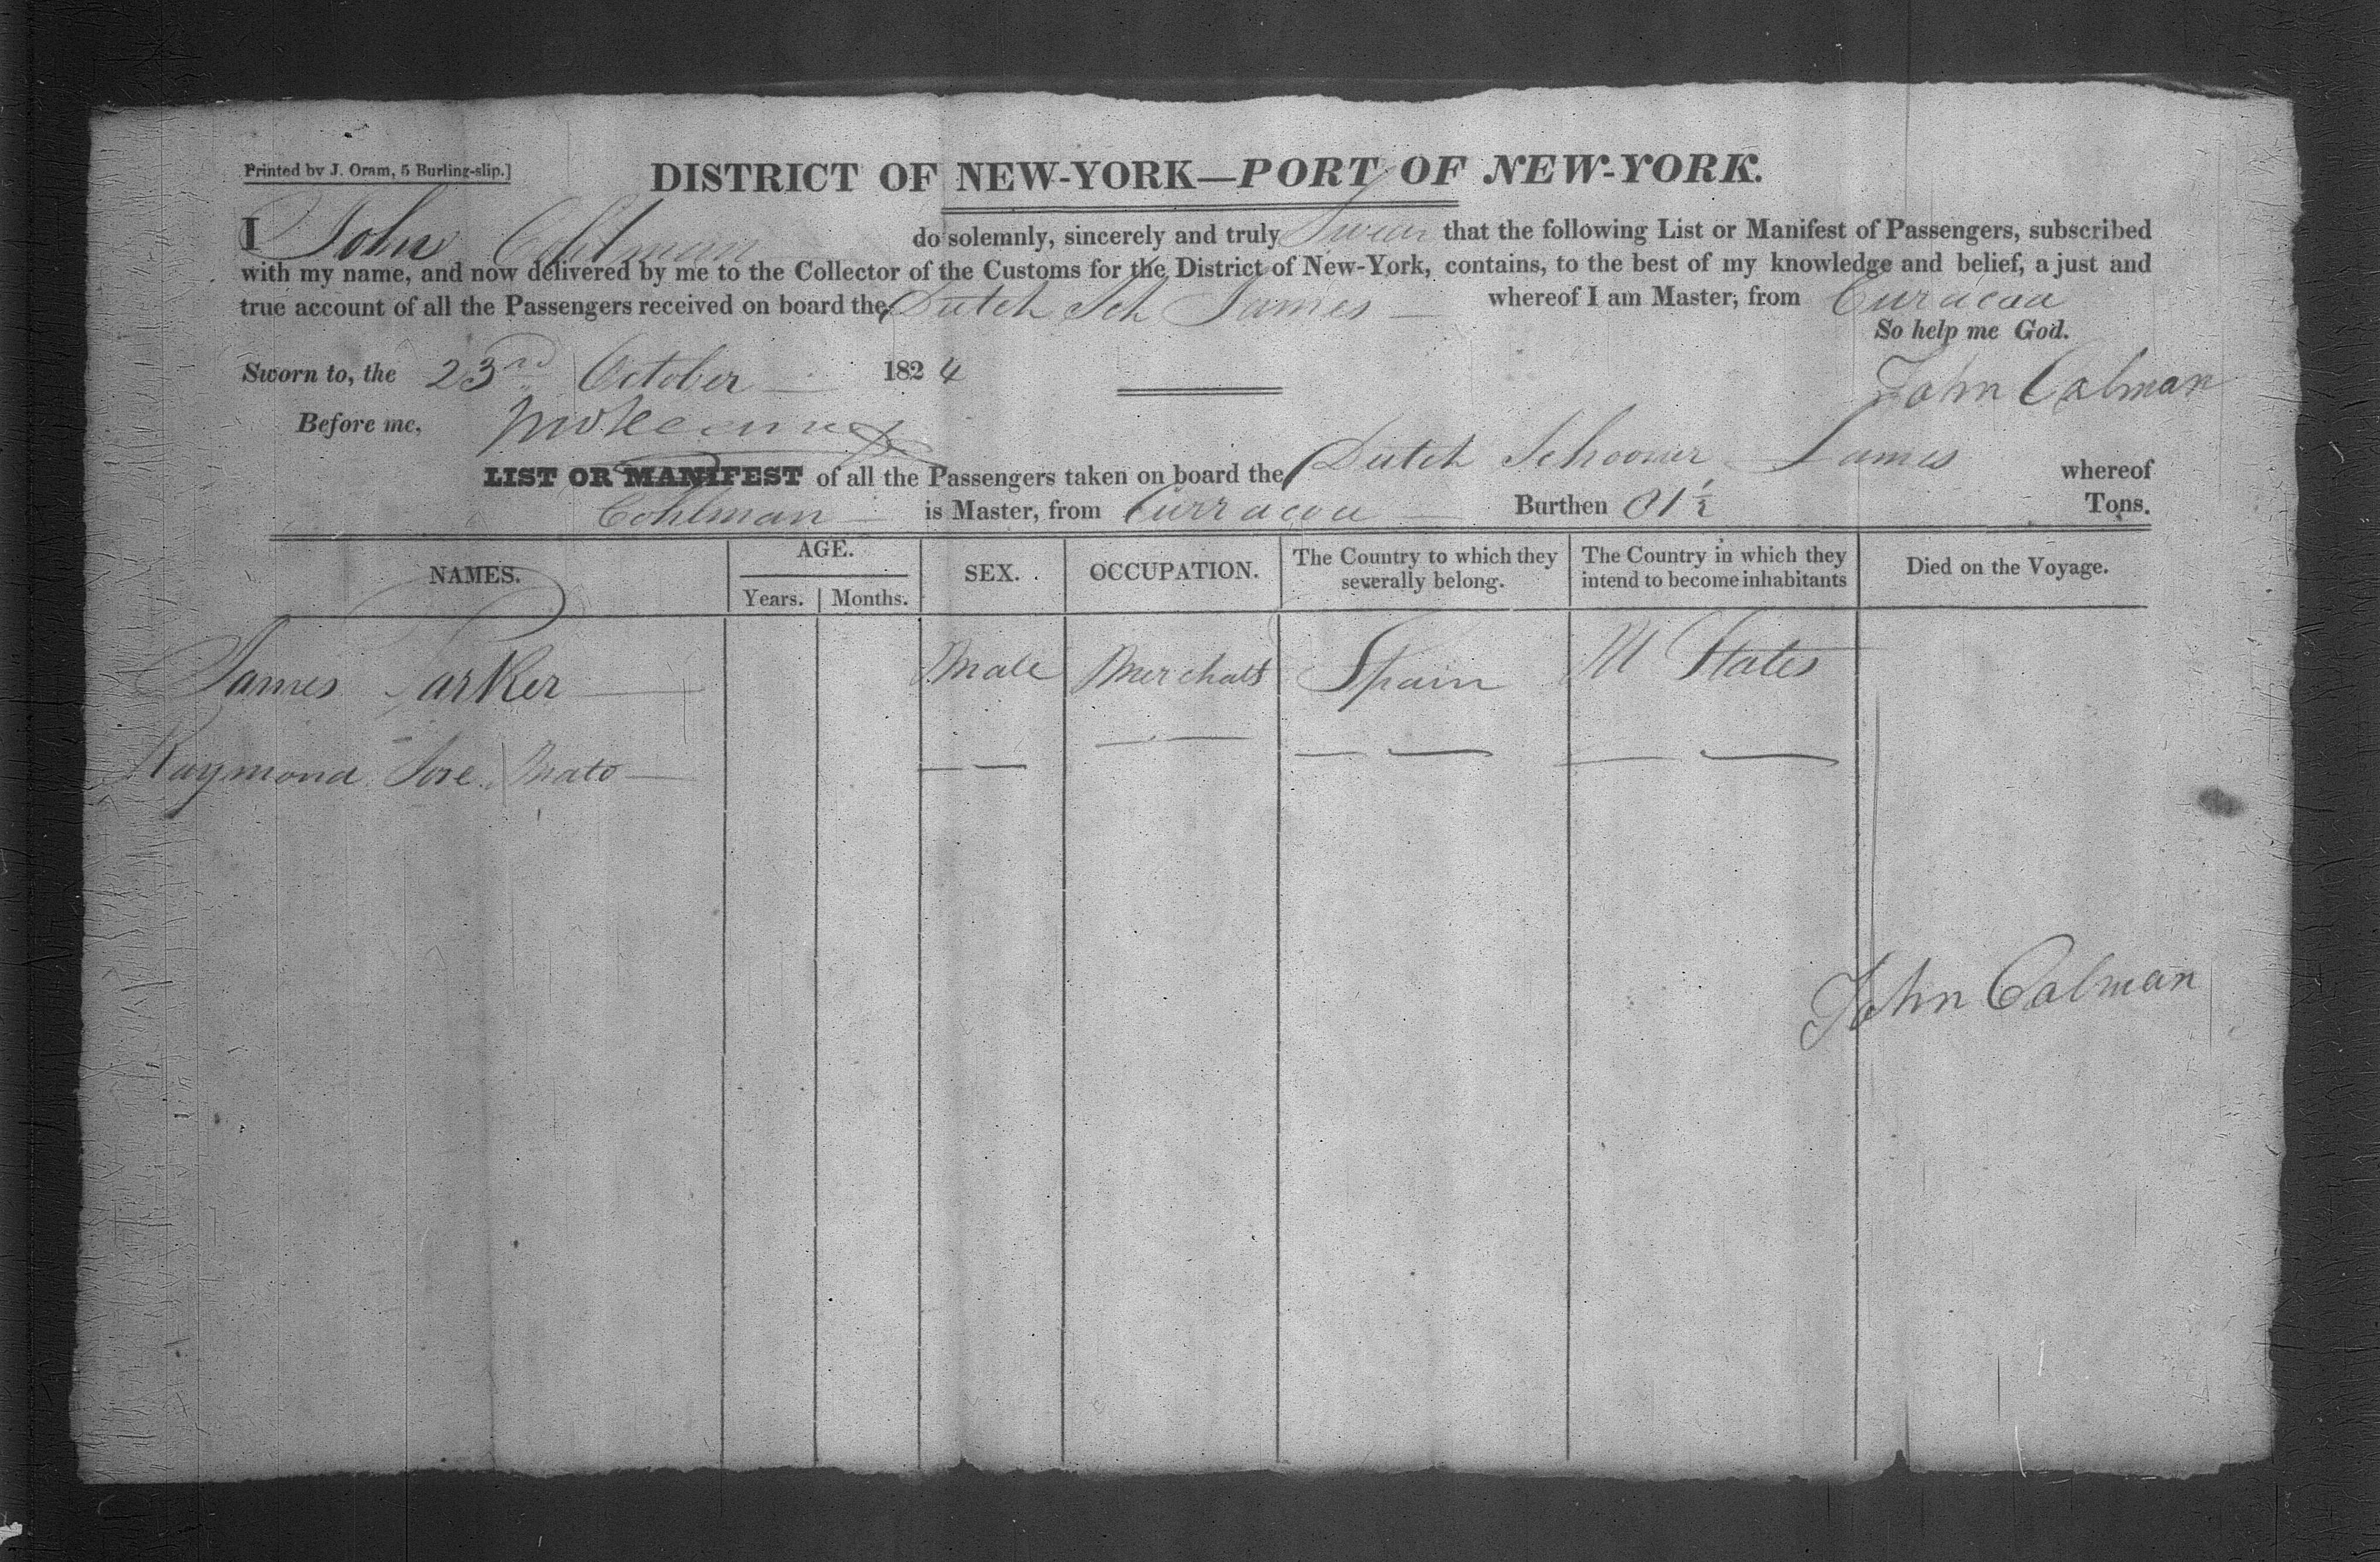 Printed by J. Oram, 5 Burling-slip.]
DISTRICT OF NEW-YORK—PORT OF NEW-YORK.
I John Cohlman do solemnly, sincerely and truly Swear that the following List or Manifest of Passengers, subscribed
with my name, and now delivered by me to the Collector of the Customs for the District of New-York, contains, to the best of my knowledge and belief, a just and
true account of all the Passengers received on board the Dutch Sch James — whereof I am Master, from Curacoa
So help me God.
Sworn to, the 23rd October — 1824
John Calman
Before me,
LIST OR MANIFEST of all the Passengers taken on board the Dutch Schooner James whereof
Cohlman — is Master, from Curracoa — Burthen 81½ Tons.
NAMES. AGE. SEX. OCCUPATION. The Country to which they severally belong. The Country in which they intend to become inhabitants Died on the Voyage.
Years. Months.
James Parker — Male Merchats Spain U States
Raymond Jose Mato — — — — — — — — —
John Calman